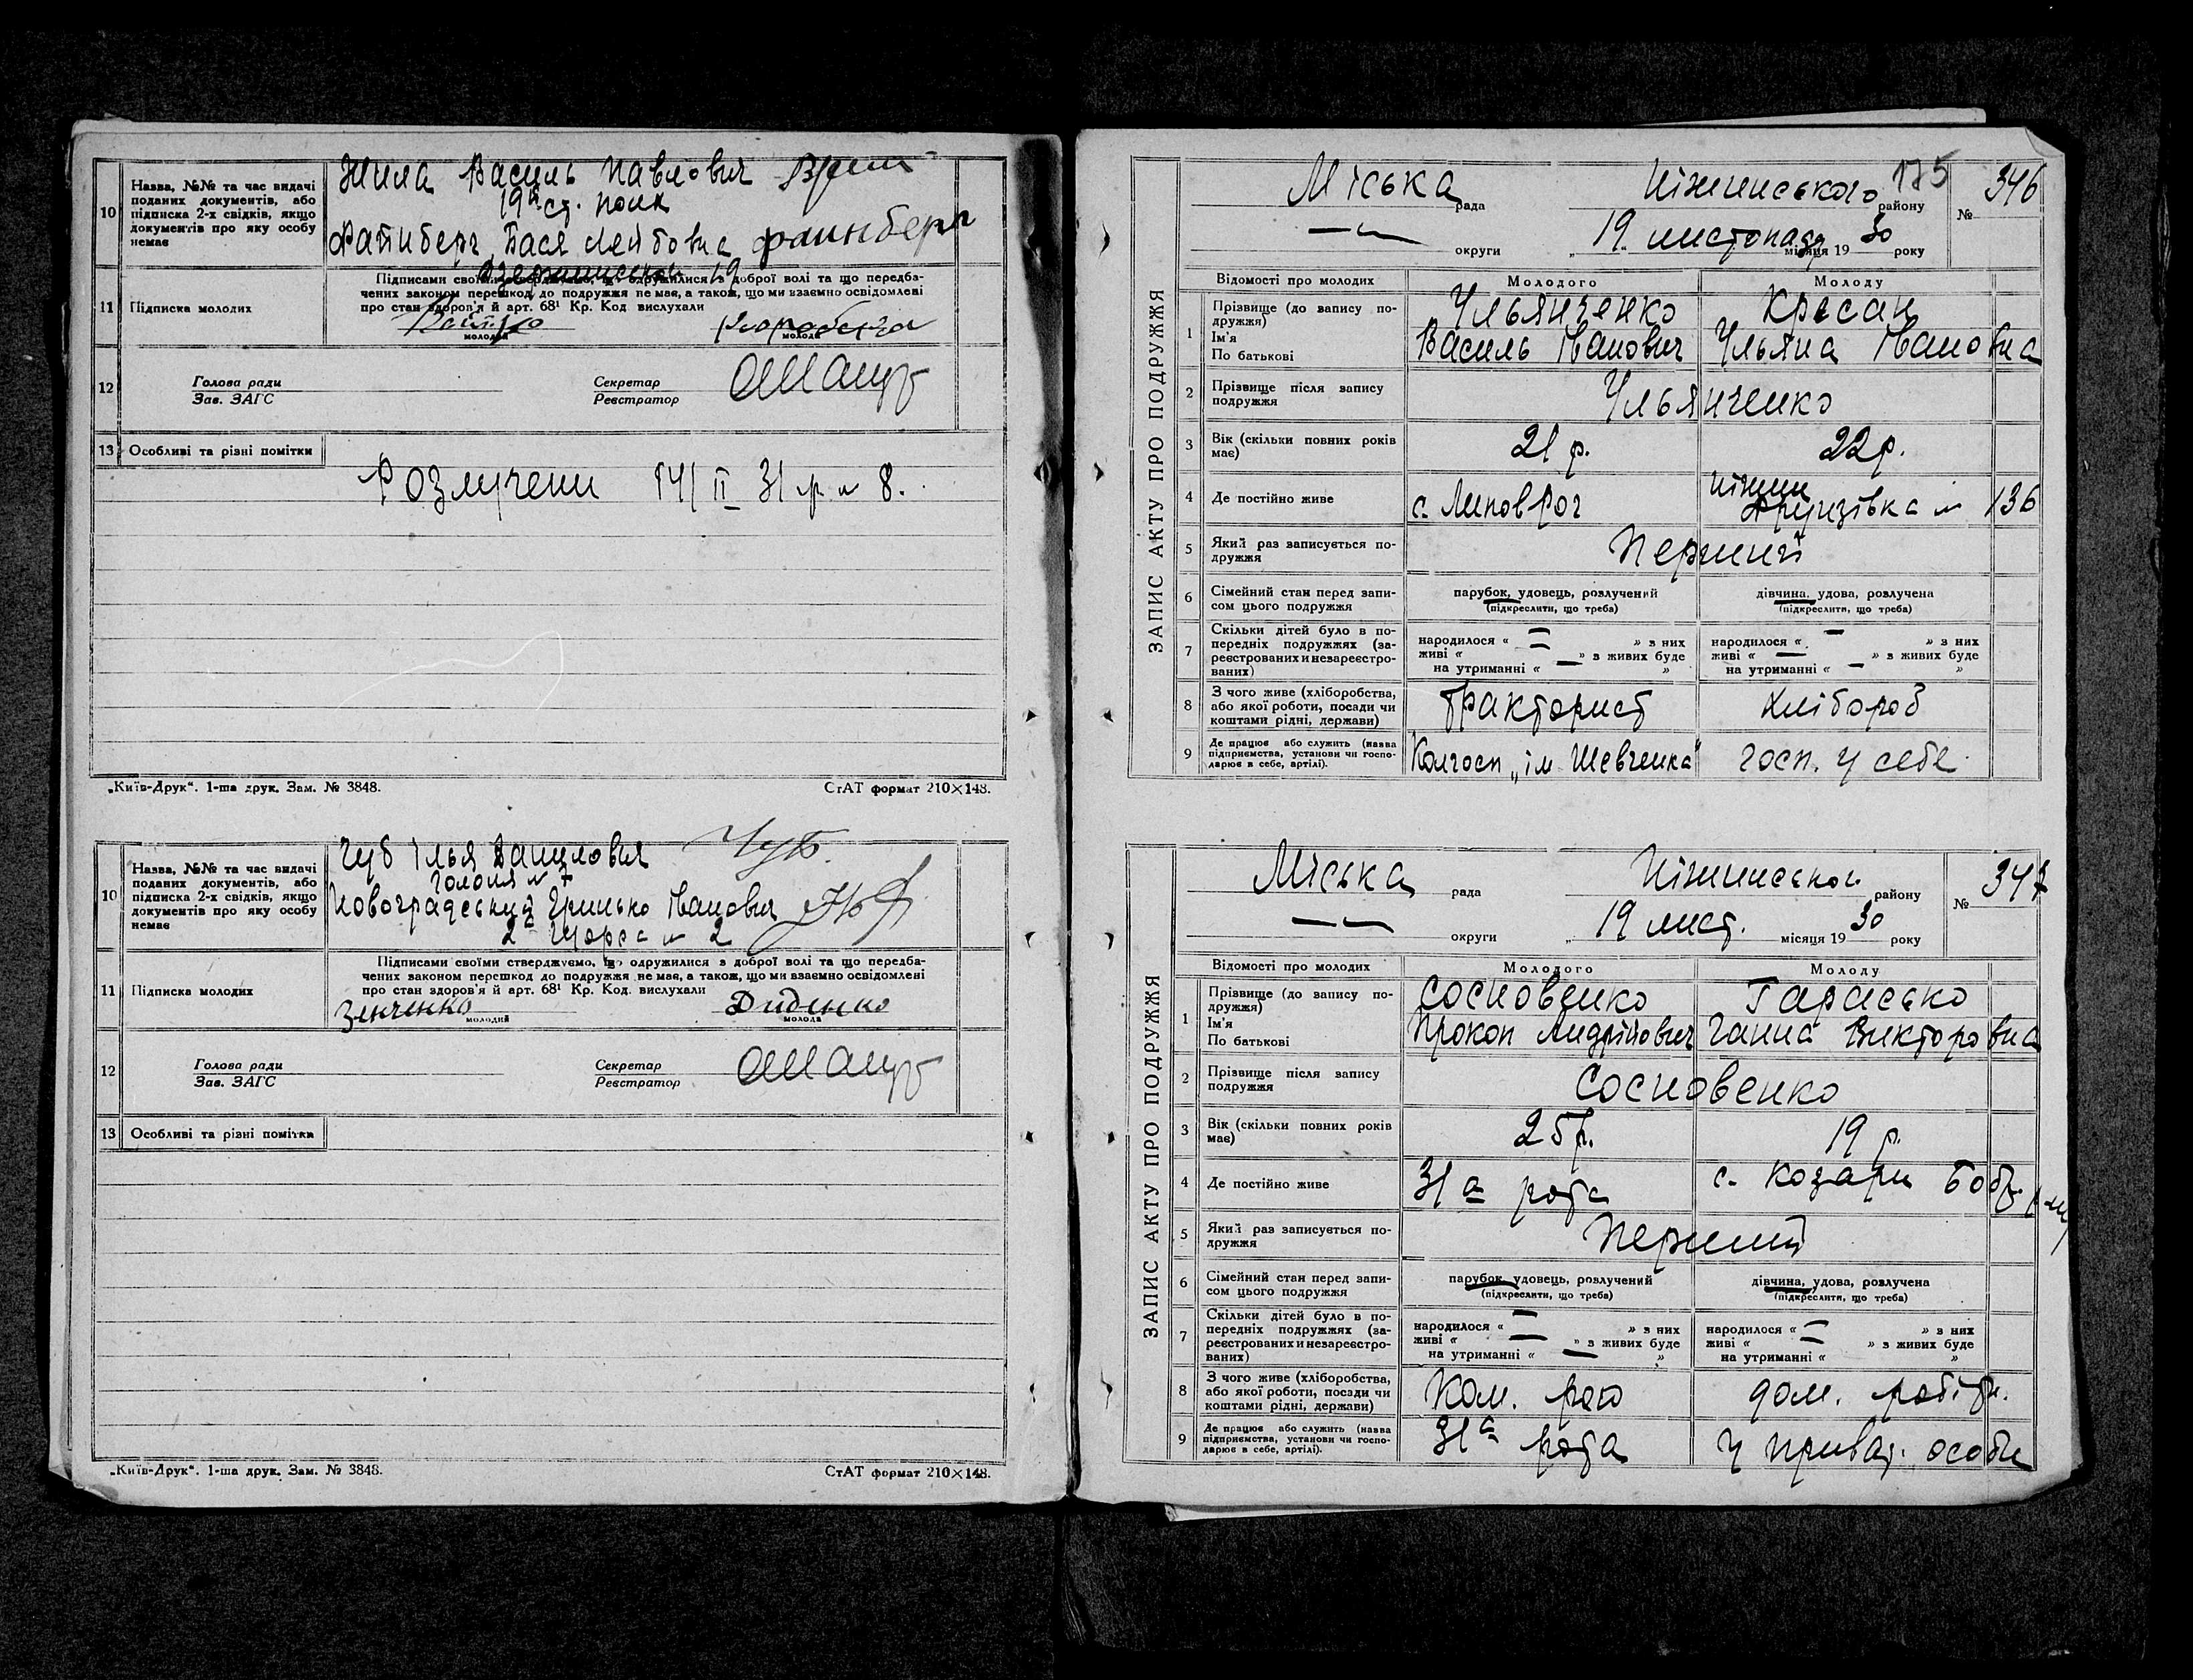 10
Назва, №№ та час видачі
поданих документів, або
підписка 2-х свідків, якщо
документів про яку особу
немає
Жила Василь Павлович
19й ст. полк
Файнберг Бася Лейбовна файнберг
11
Підписка молодих
Підписами своїми стверджуємо, що одружилися з доброї волі та що передба-
чених законом перешкод до подружжя не має, а також, що ми взаємно освідомлені
про стан здоров'я й арт. 68¹ Кр. Код вислухали
молодий
молода
12
Голова ради
Зав. ЗАГС
Секретар
Реєстратор
13
Особливі та різні помітки
Розлучени 14/II 31 р № 8.
„Київ-Друк“. 1-ша друк. Зам. № 3848.
СтАТ формат 210×148.
10
Назва, №№ та час видачі
поданих документів, або
підписка 2-х свідків, якщо
документів про яку особу
немає
Чуб Ілья Данилович Чуб.
Гоголя № 7
Новоградський Гринько Іванович
2а Щорса № 2
11
Підписка молодих
Підписами своїми стверджуємо, що одружилися з доброї волі та що передба-
чених законом перешкод до подружжя не має, а також, що ми взаємно освідомлені
про стан здоров'я й арт. 68¹ Кр. Код. вислухали
Зенченко
молодий
Диденко
молода
12
Голова ради
Зав. ЗАГС
Секретар
Реєстратор
13
Особливі та різні помітки
„Київ-Друк“. 1-ша друк. Зам. № 3848.
СтАТ формат 210×148.
ЗАПИС АКТУ ПРО ПОДРУЖЖЯ
Міська рада Ніжинського району 175 № 346
округи „ 19 листопада місяця 1930 року
Відомості про молодих
Молодого
Молоду
1
Прізвище (до запису по-
дружжя)
Ім'я
По батькові
Ульянченко
Василь Іванович
Красан
Ульяна Івановна
2
Прізвище після запису
подружжя
Ульянченко
3
Вік (скільки повних років
має)
21 р.
22 р.
4
Де постійно живе
с. Липов Рог
Ніжин
Фрунзівка № 136
5
Який раз записується по-
дружжя
Перший
6
Сімейний стан перед запи-
сом цього подружжя
парубок, удовець, розлучений
(підкреслити, що треба)
дівчина, удова, розлучена
(підкреслити, що треба)
7
Скільки дітей було в по-
передніх подружжях (за-
реєстрованих и незареєстро-
ваних)
народилося « — » з них
живі « — » з живих буде
на утриманні « — »
народилося « — » з них
живі « — » з живих буде
на утриманні « — »
8
З чого живе (хліборобства,
або якої роботи, посади чи
коштами рідні, держави)
тракторист
хлібороб
9
Де працює або служить (назва
підприємства, установи чи госпо-
дарює в себе, артілі).
Колгосп „ім Шевченка“
госп. у себе
ЗАПИС АКТУ ПРО ПОДРУЖЖЯ
Міська рада Ніжинськог. району № 347
округи „ 19 лист. місяця 1930 року
Відомості про молодих
Молодого
Молоду
1
Прізвище (до запису по-
дружжя)
Ім'я
По батькові
Сосновенко
Прокоп Андрійович
Гарасько
Ганна Викторовна
2
Прізвище після запису
подружжя
Сосновенко
3
Вік (скільки повних років
має)
25 р.
19 р.
4
Де постійно живе
31а рота
с. Козари
5
Який раз записується по-
дружжя
Перший
6
Сімейний стан перед запи-
сом цього подружжя
парубок, удовець, розлучений
(підкреслити, що треба)
дівчина, удова, розлучена
(підкреслити, що треба)
7
Скільки дітей було в по-
передніх подружжях (за-
реєстрованих и незареєстро-
ваних)
народилося « — » з них
живі « — » з живих буде
на утриманні « — »
народилося « — » з них
живі « — » з живих буде
на утриманні « »
8
З чого живе (хліборобства,
або якої роботи, посади чи
коштами рідні, держави)
Ком.
дом. робітн.
9
Де працює або служить (назва
підприємства, установи чи госпо-
дарює в себе, артілі).
31а рота
у приват. особи